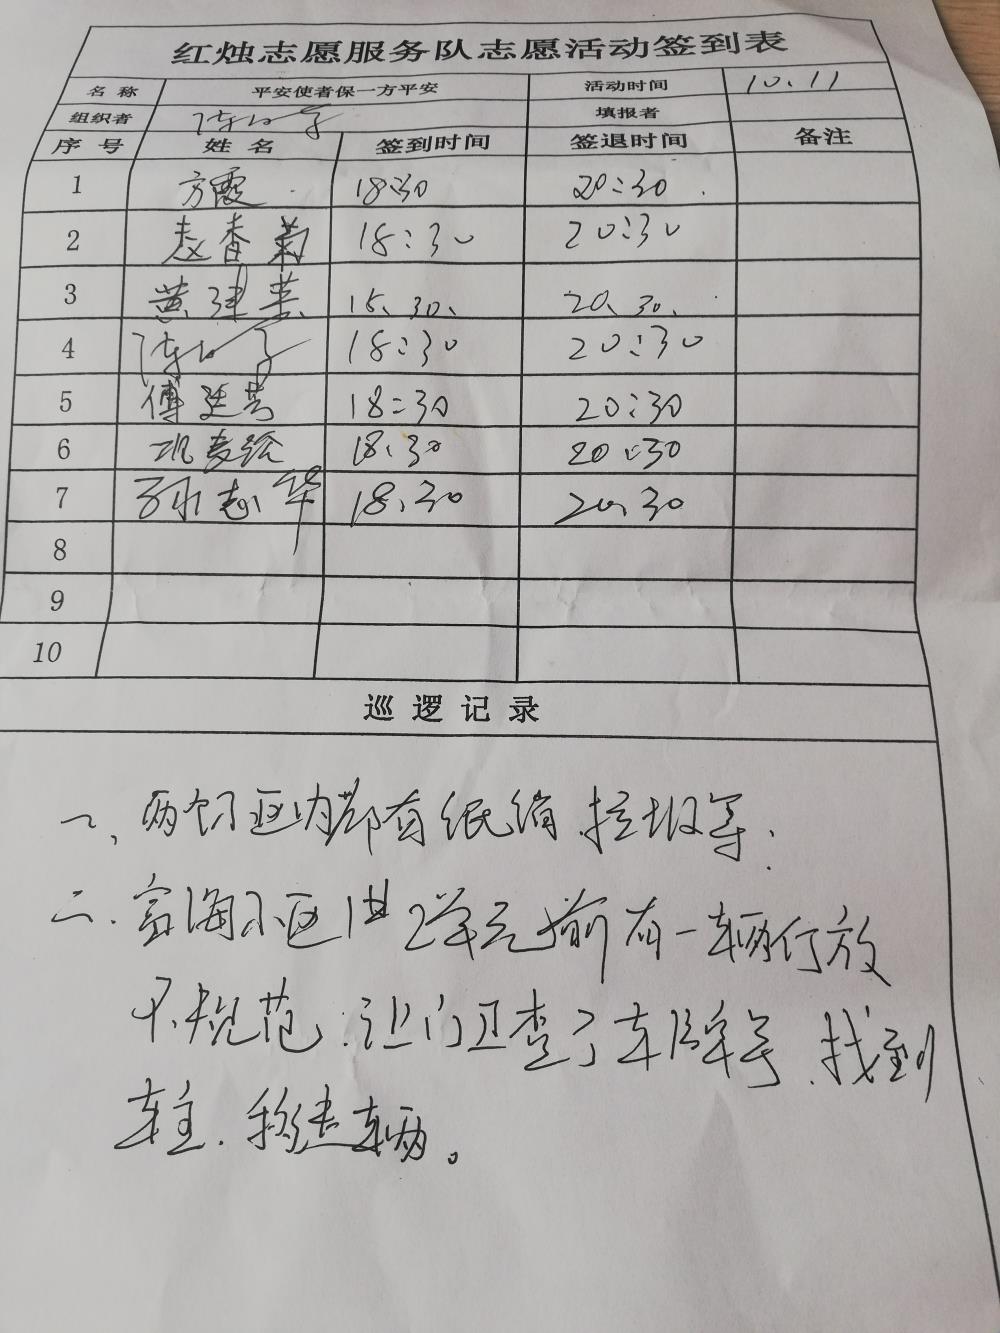 红烛志愿服务队志愿活动签到表
名 称 平安使者保一方平安 活动时间 10.11
组织者 填报者
序 号 姓 名 签到时间 签退时间 备注
1 方霞 18:30 20:30
2 赵香菊 18:30 20:30
3 黄建英 18、30、 20、30、
4 18:30 20:30
5 傅廷芳 18:30 20:30
6 巩麦绘 18:30 20:30
7 孙志华 18、30 20、30
8
9
10
巡 逻 记 录
一、两个小区内都有纸屑、垃圾等.
二、富海小区1# 2单元前有一辆停放
不规范.让门卫查了车牌号、找到
车主.移走车辆。